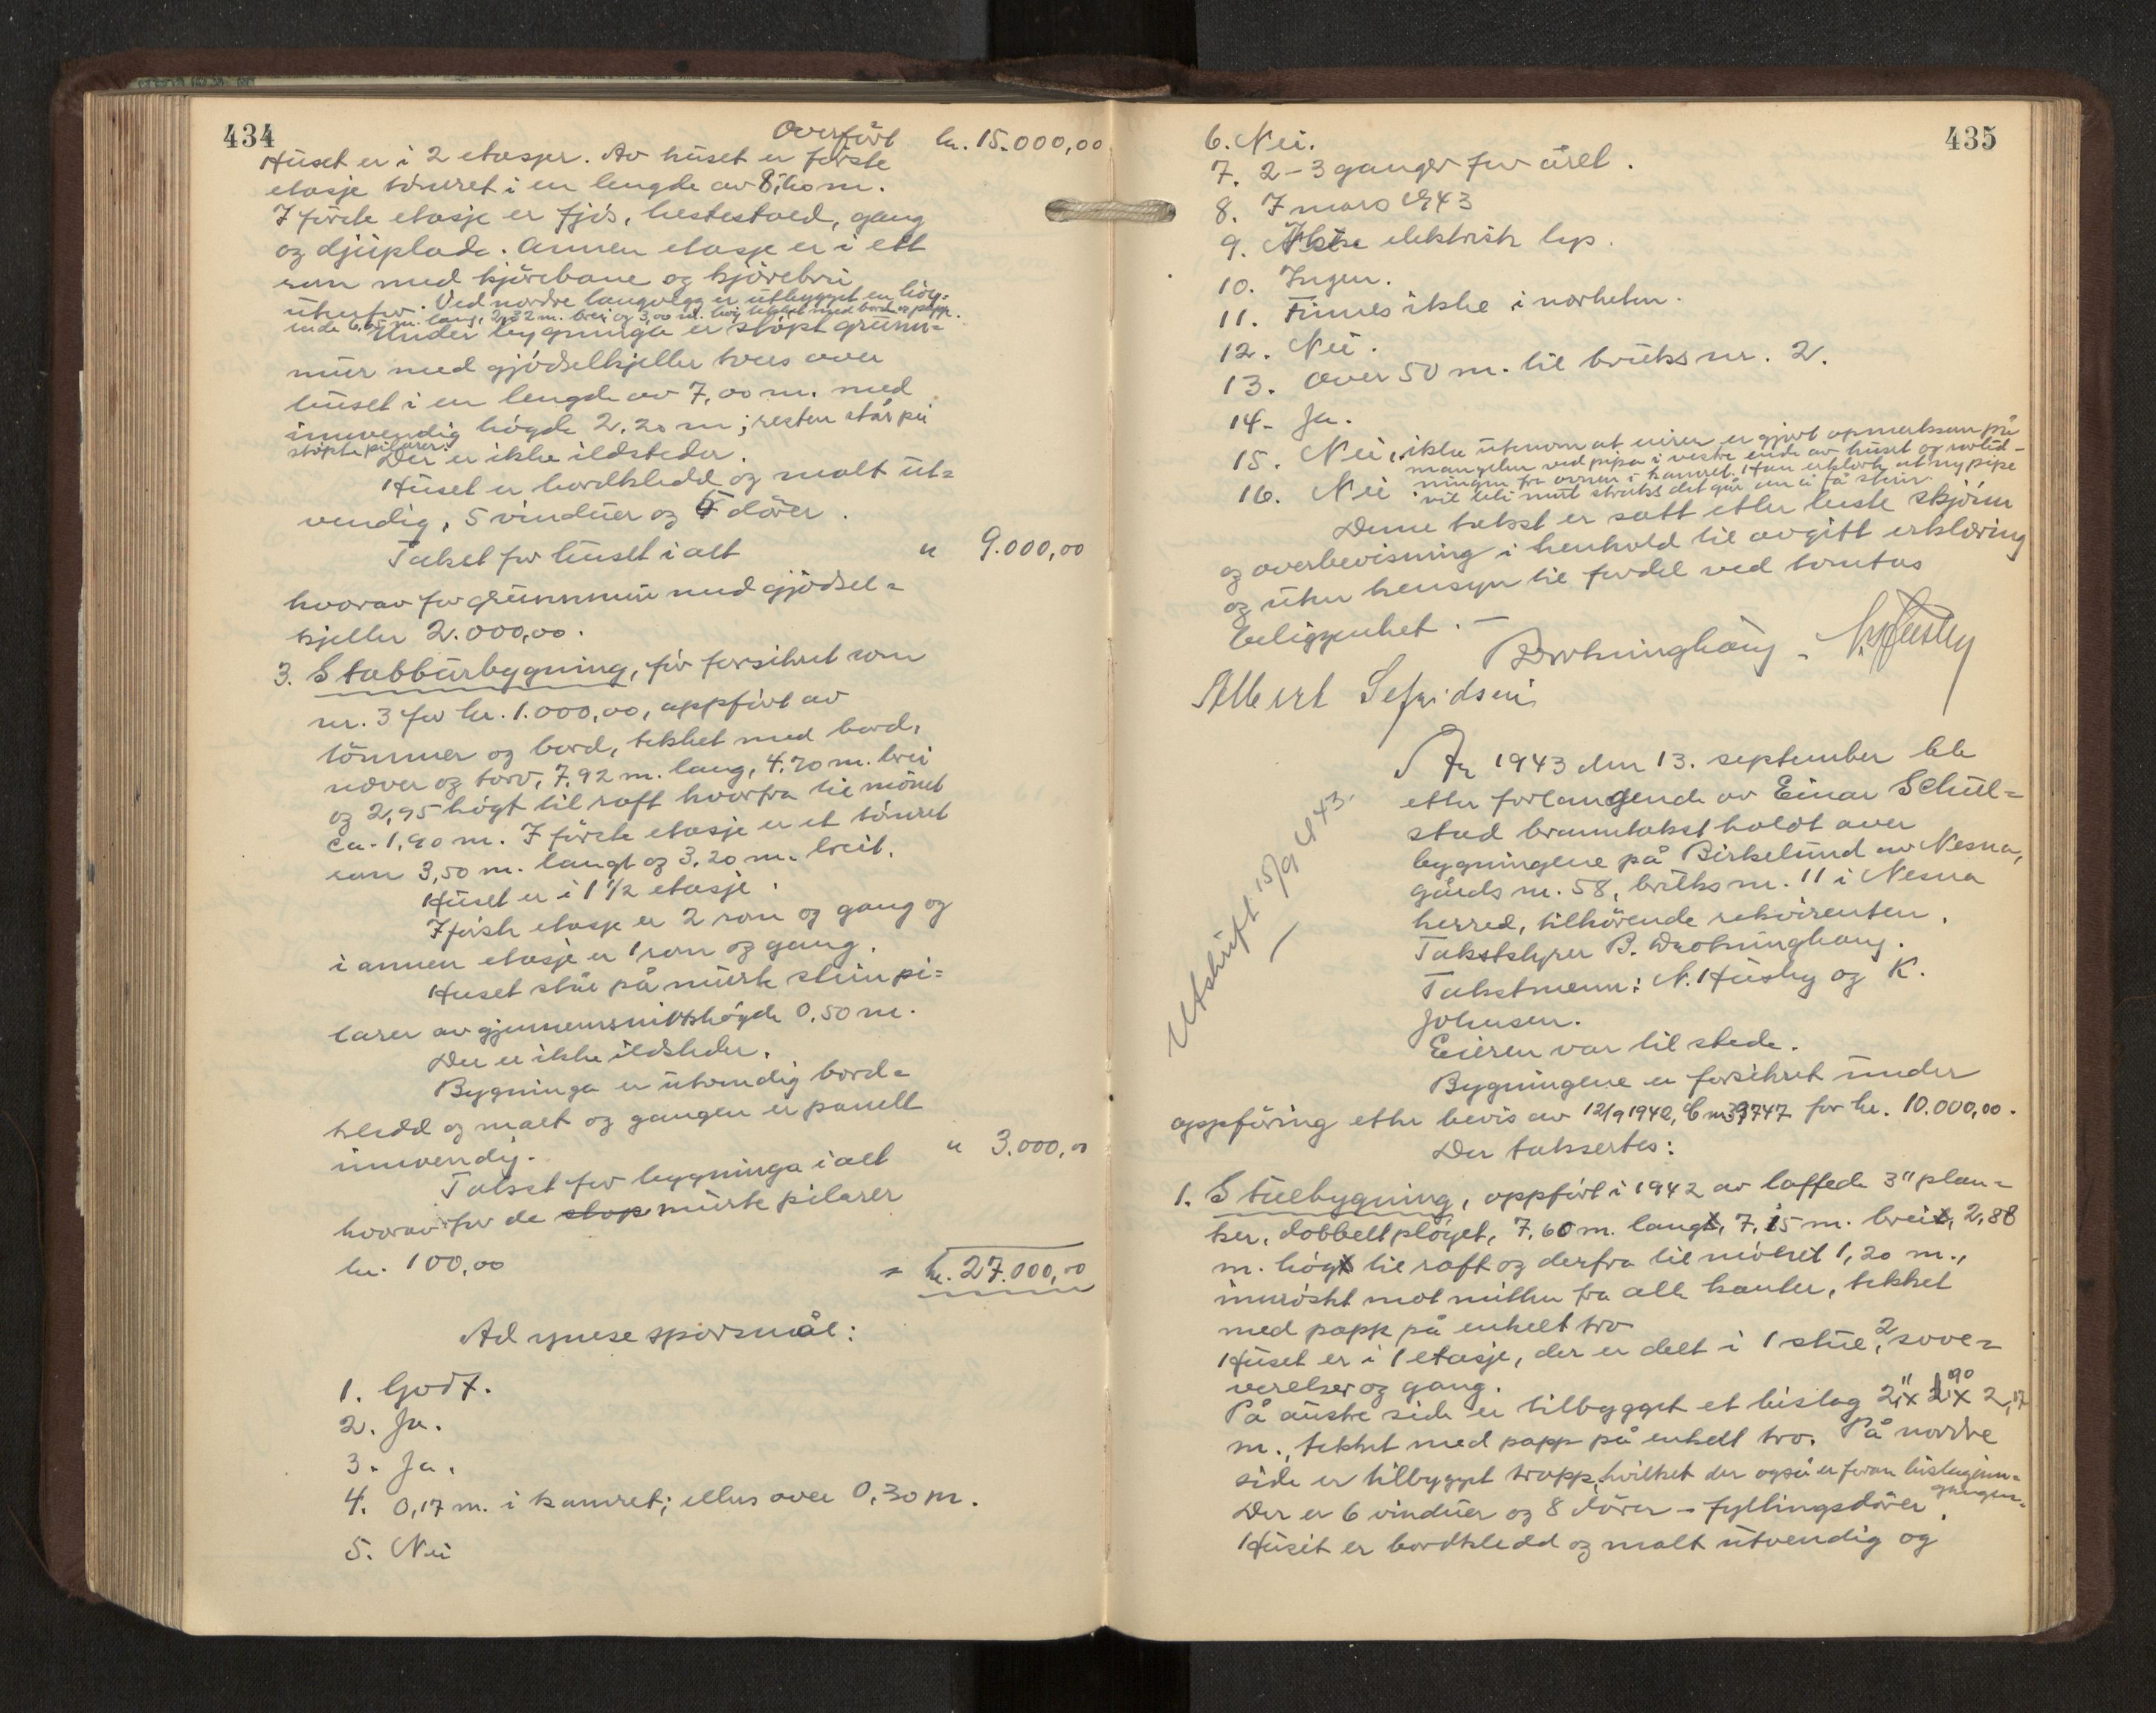 434
Overført kr. 15.000,00
Huset er i 2 etasjer. Av huset er første
etasje tømret i en lengde av 8,60 m.
I første etasje er fjøs, hestestald, gang
og djuplade. Annen etasje er i ett
rom med kjørebane og kjørebru
utenfor. Ved nordre langvegg er utbygget en høy-
inde 6,65 m. lang, 2,32 m. brei og 3,00 m. høi, tekket med bord og papp.
Under bygninga er støpt grunn-
mur med gjødselkjeller tvers over
huset i en lengde av 7,00 m. med
innvendig høgde 2.20 m; resten står på
støpte pilarer.
Der er ikke ildsteder.
Huset er bordkledd og malt ut-
vendig, 5 vinduer og 5 dører.
Takst for huset i alt " 9.000,00
hvorav for grunnmur med gjødsel-
kjeller 2.000,00.
3. Stabbursbygning, før forsikret som
nr. 3 for kr. 1.000,00, oppført av
tømmer og bord, tekket med bord,
never og torv, 7.92 m. lang, 4.70 m. brei
og 2,95 høgt til raft hvorfra til mønet
ca. 1,90 m. I første etasje er et tømret
rom 3,50 m. langt og 3,20 m. breit.
Huset er i 1 1/2 etasje.
I første etasje er 2 rom og gang og
i annen etasje er 1 rom og gang.
Huset står på murte steinpi-
larer av gjennemsnittshøgde 0.50 m.
Der er ikke ildsteder.
Bygninga er utvendig bord-
kledd og malt og gangen er panelt
innvendig.
Takst for bygninga i alt " 3.000,00
hvorav for de støp murte pilarer
kr. 100,00
= kr. 27.000,00
Ad ymse spørsmål:
1. Godt.
2. Ja.
3. Ja.
4. 0,17 m. i kamret; ellers over 0.30 m.
5. Nei
435
6. Nei.
7. 2-3 ganger for året.
8. I mars 1943
9. elektrisk lys.
10. Ingen.
11. Finnes ikke i nærheten.
12. Nei.
13. Over 50 m. til bruks nr. 2.
14. Ja.
15. Nei, ikke utenom at eieren er gjort opmerksom på
mangelen ved pipa i vestre ende av huset og
ningen fra ovnen i kamret. Han erklærte at ny pipe
vil bli murt straks det går an å få stein.
16. Nei
Denne takst er satt etter beste skjønn
og overbevisning i henhold til avgitt erklæring
og uten hensyn til fordel ved tomtas
beliggenhet. —
B. Dronninghaug. N. Husby
Albert Sefridsen
År 1943 den 13. september ble
etter forlangende av Einar Schul-
stad branntakst holdt over
bygningene på Birkelund av Nesna,
gårds nr. 58, bruks nr. 11 i Nesna
herred, tilhørende rekvirenten.
Takststyrer B. Dronninghaug.
Takstmenn: N. Husby og K.
Johnsen.
Eieren var til stede.
Utskrift 15/9 1943.
Bygningene er forsikret under
oppføring etter bevis av 12/9 1942, C nr. 39747 for kr. 10.000,00.
Der taksertes:
1. Stuebygning, oppført i 1942 av laftede 3" plan-
ker, dobbeltpløyet, 7,60 m. lang, 7,15 m. brei, 2,88
m. høg til raft og derfra til mønet 1,20 m.,
innrøstet mot midten fra alle kanter, tekket
med papp på enkelt tro
Huset er i 1 etasje, der er delt i 1 stue, 2 sove-
værelser og gang.
På austre side er tilbygget et bislag 2,11 x 1,90 x 2,17
m., tekket med papp på enkelt tro. På nordre
side er tilbygget trapp, hvilket der også er foran bislaginn-
gangen.
Der er 6 vinduer og 8 dører - fyllingsdører.
Huset er bordkledd og malt utvendig og